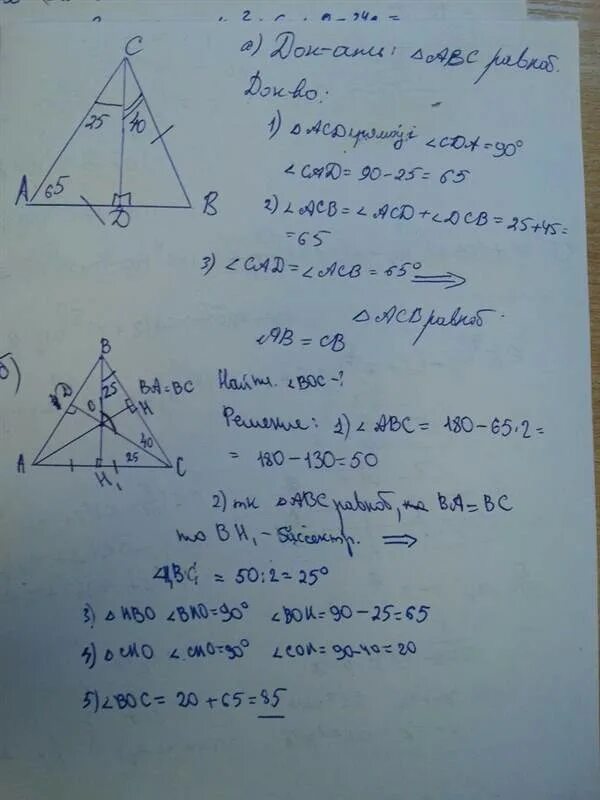 C
25
40
A 65
D
B
а) Док-ать: △ABC равноб.
Док-во:
1) △ACD прямоуг ∠CDA=90°
∠CAD = 90-25 = 65
2) ∠ACB = ∠ACD + ∠DCB = 25+45=
= 65
3) ∠CAD = ∠ACB = 65° ⟹
△ACB равноб.
AB = CB
б)
B
D
25
BA=BC
O
H
40
A
H₁
25
C
Найти ∠BOC-?
Решение: 1) ∠ABC = 180-65·2=
= 180-130=50
2) тк △ABC равноб, на BA=BC
то BH₁ - биссектр. ⟹
= 50:2=25°
3) △HBO ∠BHO=90° ∠BOH=90-25=65
4) △CHO ∠CHO=90° ∠COH=90-40=20
5) ∠BOC = 20+65=85